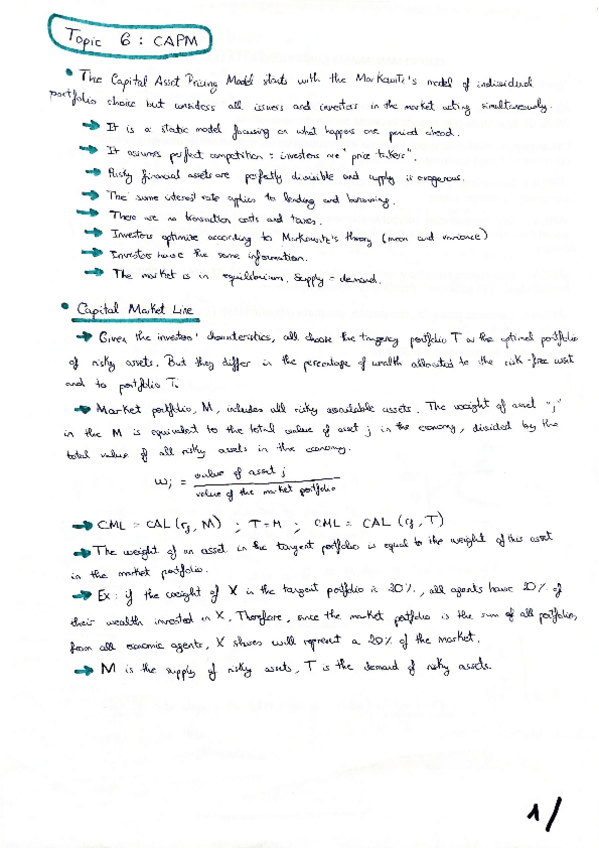 Topic 6: CAPM
• The Capital Asset Pricing Model starts with the Markowitz's model of individual
portfolio choice but considers all issuers and investors in the market acting simultaneously.
→ It is a static model focusing on what happens one period ahead.
→ It assumes perfect competition: investors are "price takers".
→ Risky financial assets are perfectly divisible and supply is exogenous.
→ The same interest rate applies to lending and borrowing.
→ There are no transaction costs and taxes.
→ Investors optimize according to Markowitz's theory (mean and variance)
→ Investors have the same information.
→ The market is in equilibrium. Supply = demand.
• Capital Market Line
→ Given the investors' characteristics, all choose the tangency portfolio T as the optimal portfolio
of risky assets. But they differ in the percentage of wealth allocated to the risk-free asset
and to portfolio T.
→ Market portfolio, M, includes all risky available assets. The weight of asset "j"
in the M is equivalent to the total value of asset j in the economy, divided by the
total value of all risky assets in the economy.
wj = value of asset j / value of the market portfolio
→ CML = CAL (rf, M) ; T = M ; CML = CAL (rf, T)
→ The weight of an asset in the tangent portfolio is equal to the weight of this asset
in the market portfolio.
→ Ex: if the weight of X in the tangent portfolio is 20%, all agents have 20% of
their wealth invested in X. Therefore, since the market portfolio is the sum of all portfolios,
from all economic agents, X shares will represent a 20% of the market.
→ M is the supply of risky assets, T is the demand of risky assets.
1/